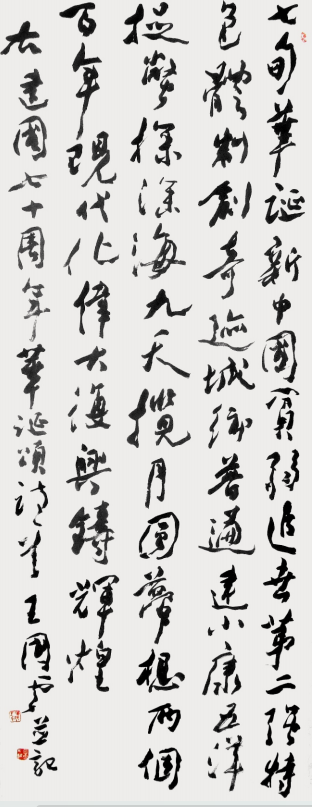 七旬華誕新中國貧弱第二強特
色體制創奇跡城鄉普遍建小康五洋
捉鱉探深海九天攬月圓夢想兩個
百年現代化偉大復興鑄輝煌
右建國七十周年華誕頌詩一首王國并記